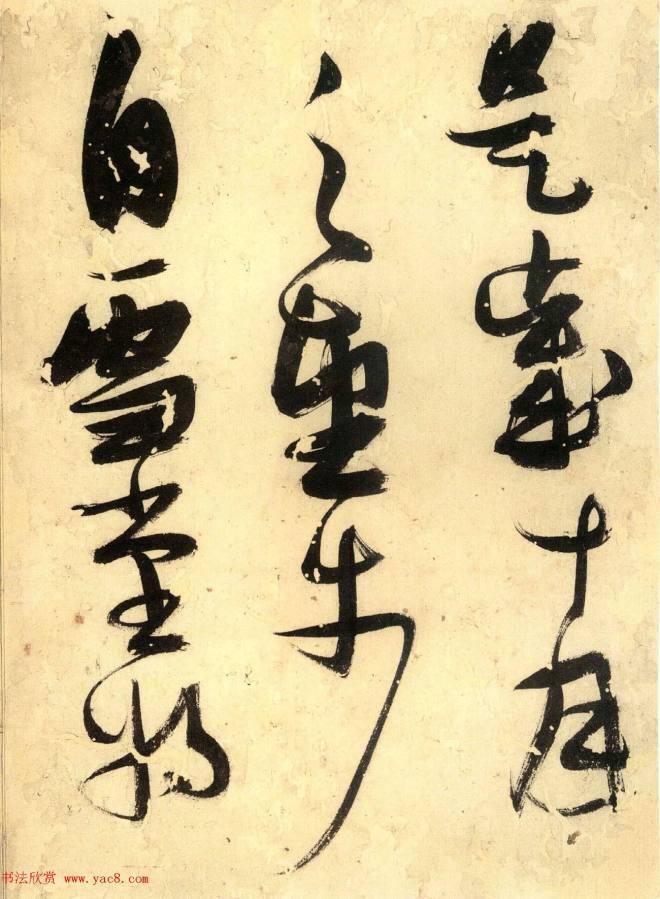 是歲十月
之望步
自雪堂將
书法欣赏 www.yac8.com